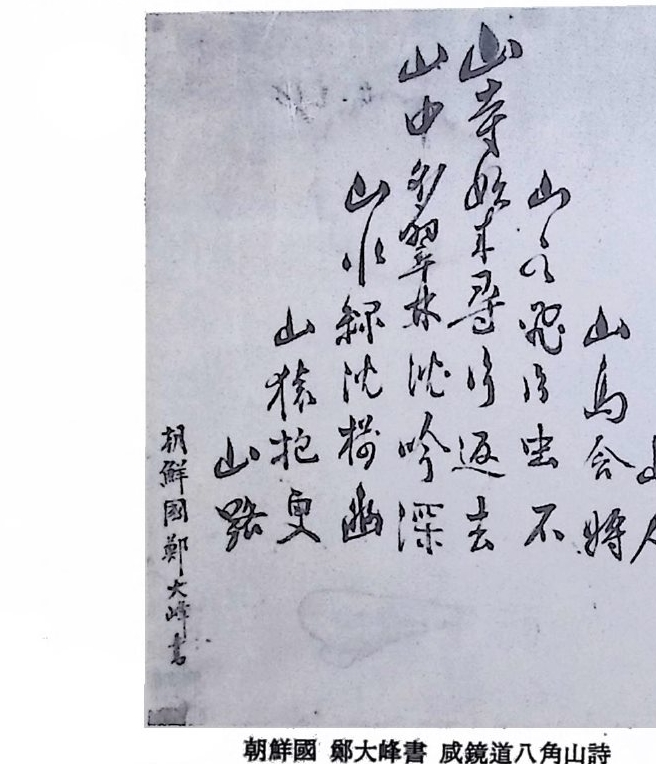 山人
山鳥含將
山飛虫不
山寺始來尋返去
山中多翠林沈吟深
山水綠沈幽
山猿抱更
山路
朝鮮國鄭大峰書
朝鮮國 鄭大峰書 咸鏡道八角山詩